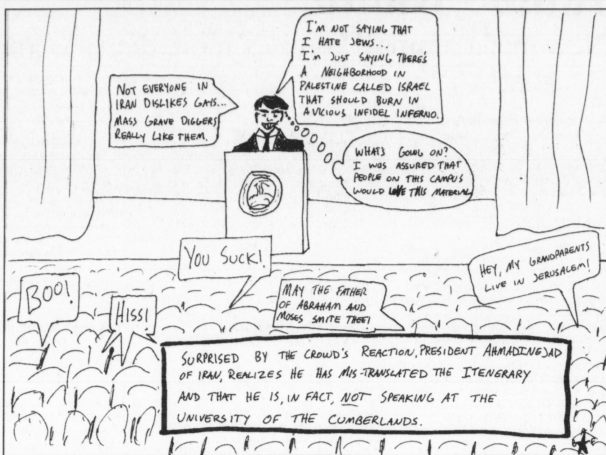 NOT EVERYONE IN
IRAN DISLIKES GAYS...
MASS GRAVE DIGGERS
REALLY LIKE THEM.
I'M NOT SAYING THAT
I HATE JEWS...
I'M JUST SAYING THERE'S
A NEIGHBORHOOD IN
PALESTINE CALLED ISRAEL
THAT SHOULD BURN IN
A VICIOUS INFIDEL INFERNO.
WHATS GOING ON?
I WAS ASSURED THAT
PEOPLE ON THIS CAMPUS
WOULD LOVE THIS MATERIAL
BOO!
HISS!
YOU SUCK!
MAY THE FATHER
OF ABRAHAM AND
MOSES SMITE THEE!
HEY, MY GRANDPARENTS
LIVE IN JERUSALEM!
SURPRISED BY THE CROWD'S REACTION, PRESIDENT AHMADINEJAD
OF IRAN, REALIZES HE HAS MIS-TRANSLATED THE ITENERARY
AND THAT HE IS, IN FACT, NOT SPEAKING AT THE
UNIVERSITY OF THE CUMBERLANDS.